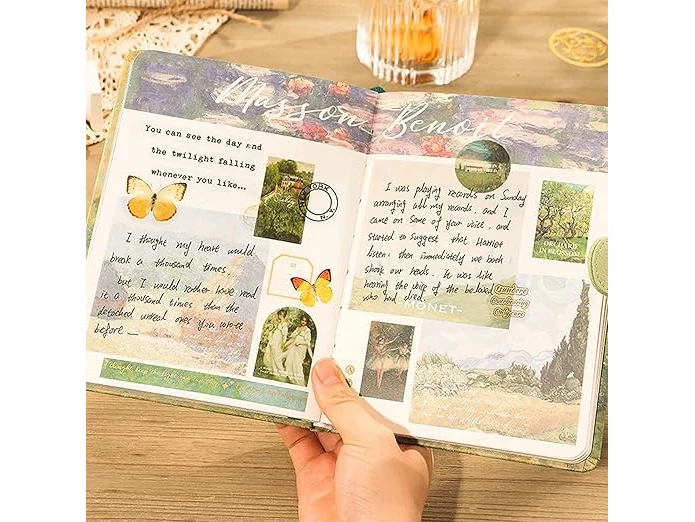 Masson Benoit
You can see the day and
the twilight falling
whenever you like...
YORK
N.Y.
I thought my heart would
break a thousand times,
but I would rather have read
it a thousand times than the
detached unreal ones you wrote
before —
I was playing records on Sunday
arranging all my records, and I
came on some of your voice, and
started to suggest that Harriet
listen: then immediately we both
shook our heads. It was like
hearing the voice of the beloved
who had died.
MONET-
ORCHARD
IN BLOSSOM